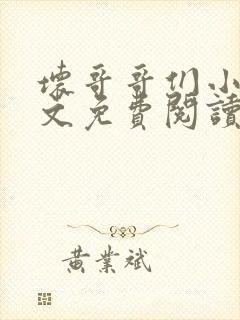 壞哥哥们小
文免費閱讀
黃業斌